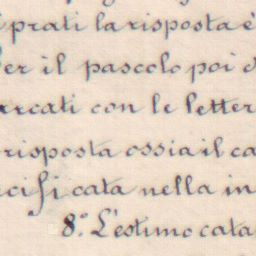 prati la risposta è
er il pascolo poi
arcati con le letter
risposta ossia il ca
cificata nella in
8.° L'estimo cata